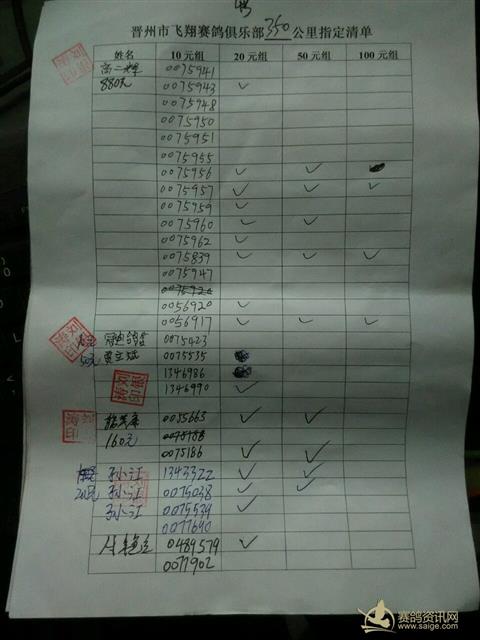 晋州市飞翔赛鸽俱乐部350公里指定清单
姓名 10元组 20元组 50元组 100元组
高二辉 0075941
880元 0075943 ✓
0075948
0075950
0075951
0075955
0075956 ✓ ✓
0075957 ✓ ✓ ✓
0075959 ✓
0075960 ✓ ✓
0075962 ✓
0075839 ✓ ✓ ✓
0075947
0056920 ✓
0056917 ✓ ✓ ✓
0075423
50元 贾立斌 0075535
1346986
1346990 ✓
0055663 ✓ ✓
160元
0075186 ✓ ✓
孙小江 1343322 ✓ ✓
孙小江 0075038 ✓ ✓
孙小江 0075539 ✓
0077690
0489579 ✓
0077902
赛鸽资讯网
www.saige.com